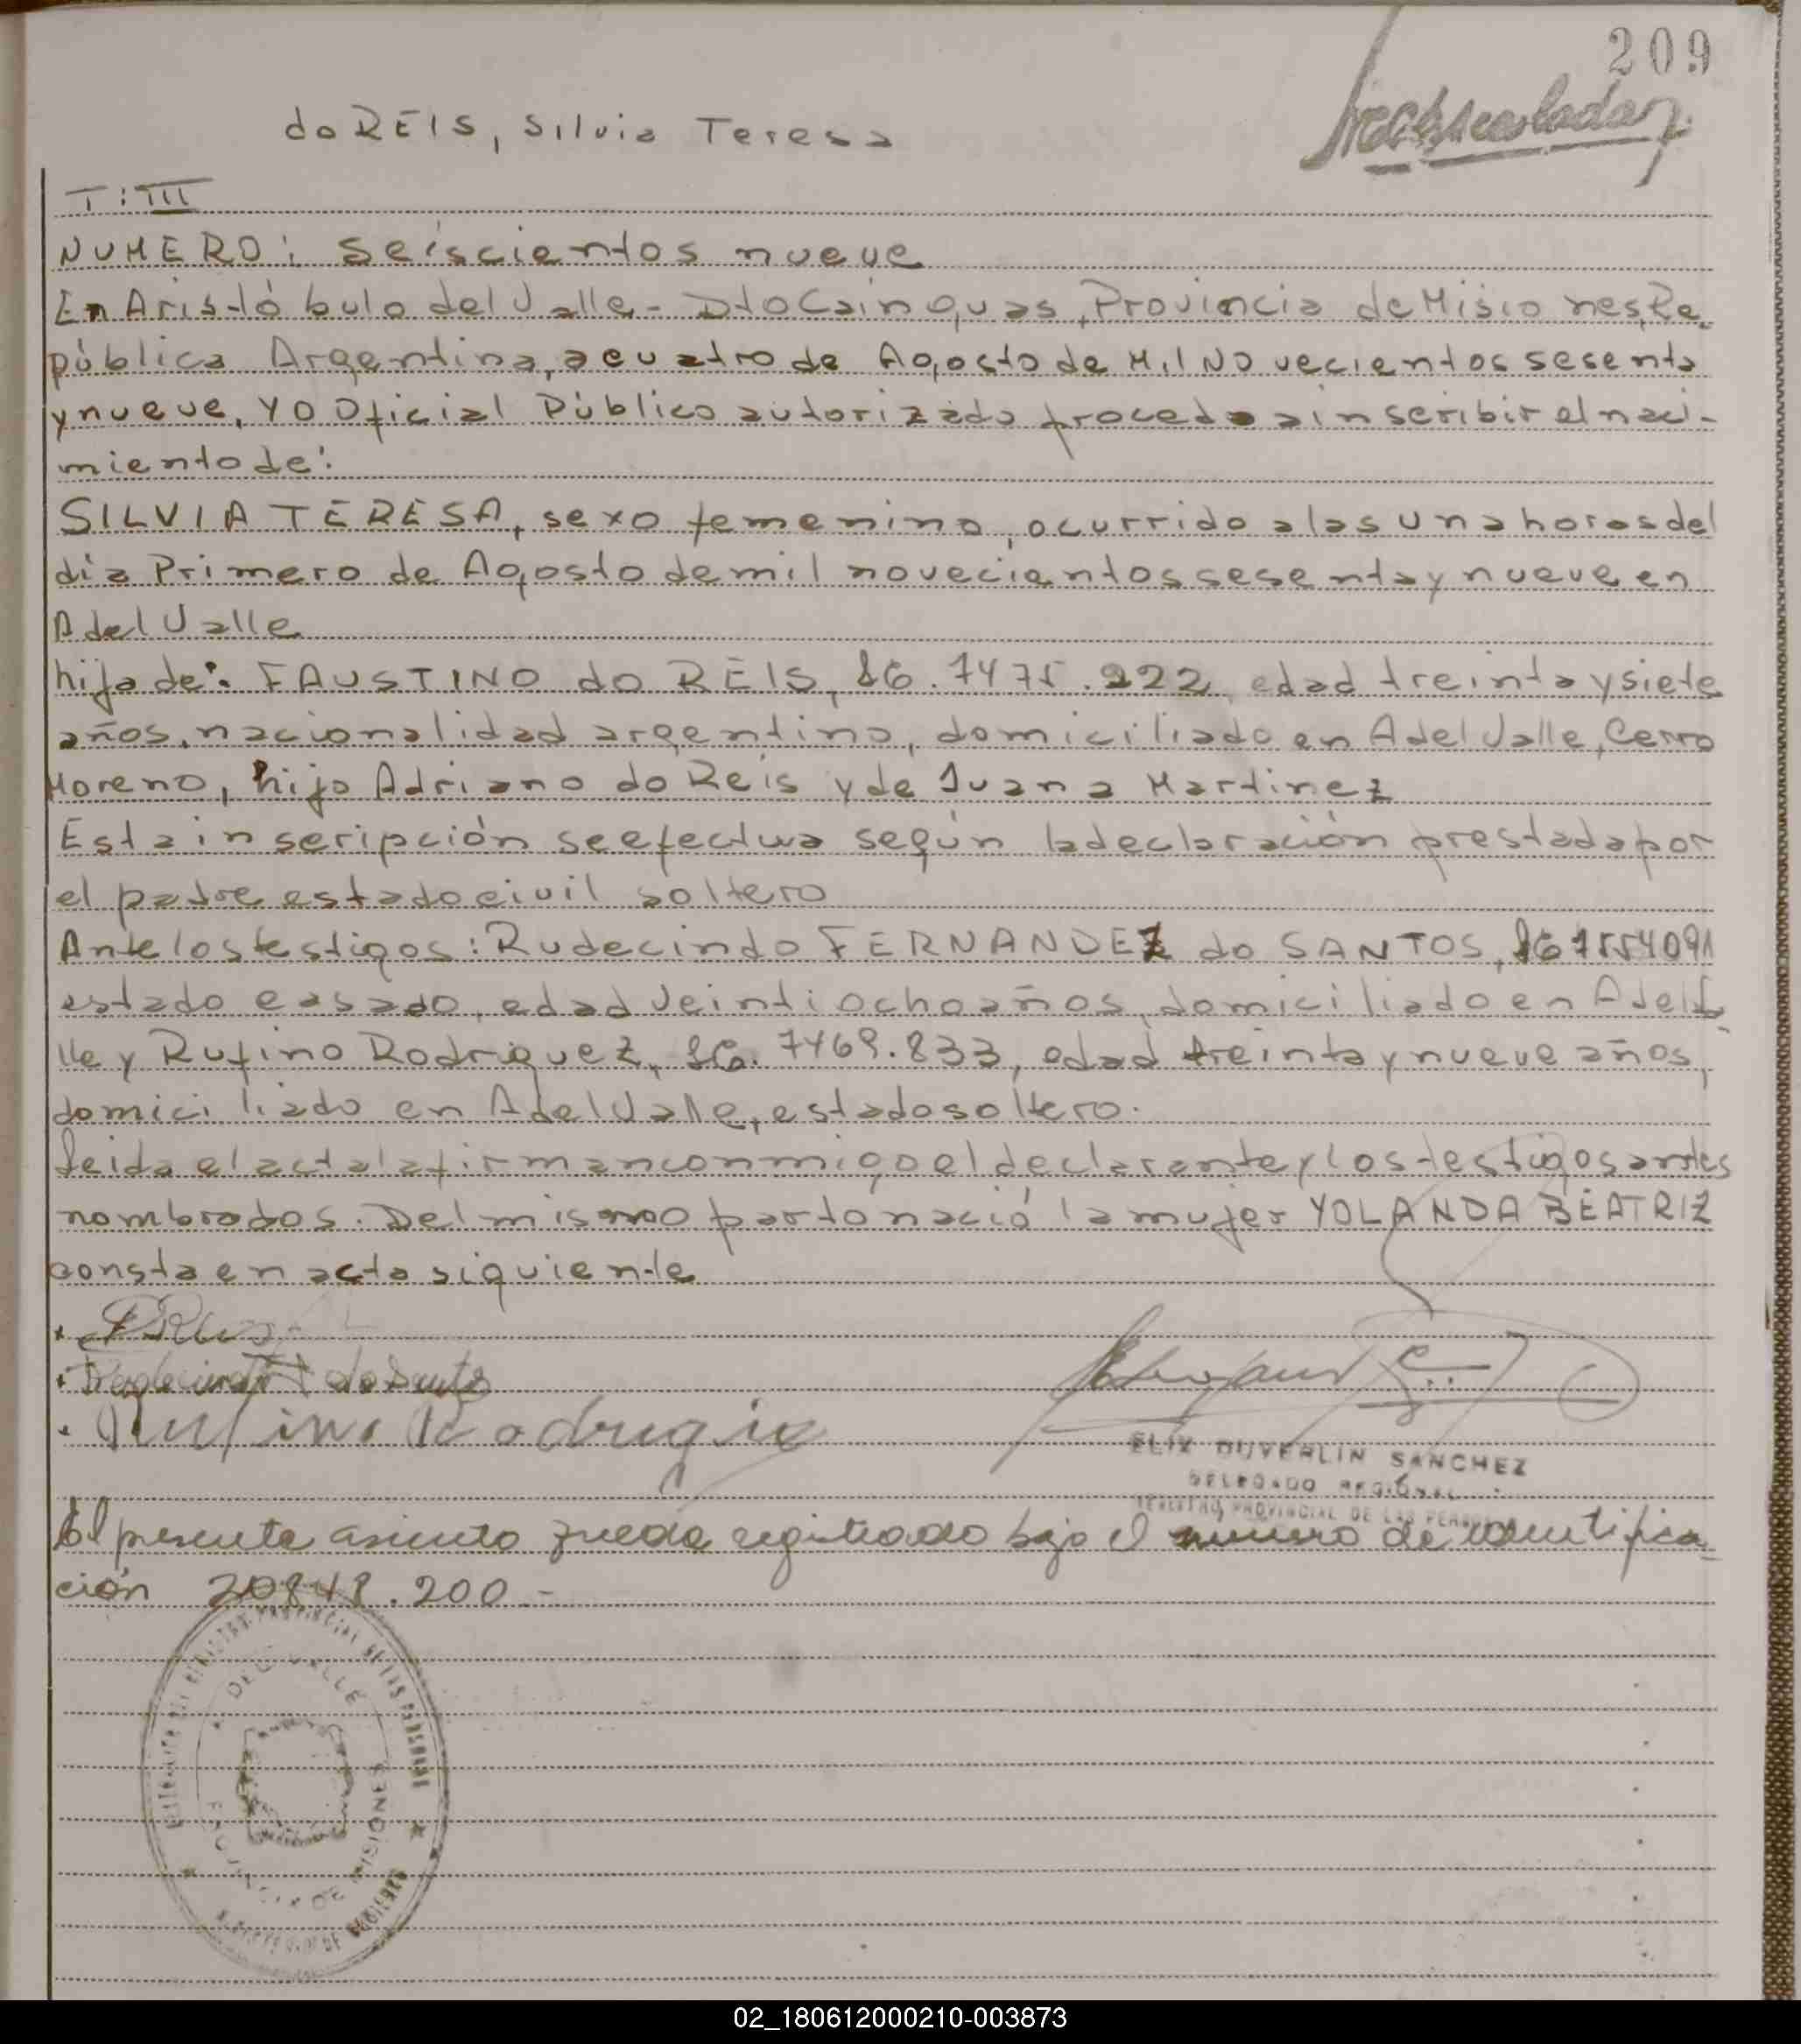 209
do REIS, Silvia Teresa
T: III
NUMERO: Seiscientos nueve
En Aristóbulo del Valle - Dto Cainguas, Provincia de Misiones, Re-
pública Argentina, a cuatro de Agosto de Mil Novecientos sesenta
y nueve, YO Oficial Público autorizado procedo a inscribir el naci-
miento de:
SILVIA TERESA, sexo femenino, ocurrido a las una horas del
día Primero de Agosto de mil novecientos sesenta y nueve en
A del Valle
hija de: FAUSTINO do REIS, 7475.222, edad treinta y siete
años, nacionalidad argentina, domiciliado en A del Valle, Cerro
Moreno, hijo Adriano do Reis y de Juana Martinez
Esta inscripción se efectua según la declaración prestada por
el padre estado civil soltero
Ante los testigos: Rudecindo FERNANDEZ do SANTOS, 7554091
estado casado, edad veintiocho años, domiciliado en A del
lle y Rufino Rodriguez, 7469.833, edad treinta y nueve años,
domiciliado en A del Valle, estado soltero.
Leida el acta la firman conmigo el declarante y los testigos antes
nombrados. Del mismo parto nació la mujer YOLANDA BEATRIZ
consta en acta siguiente
do Santos
Rufino Rodrigie
ELIX DUVERLIN SANCHEZ
DELEGADO REGIONAL
PROVINCIAL DE LAS
El presente asiento queda registrado bajo el numero de identifica-
ción 20848.200.-
REGISTRO PROVINCIAL DE LAS PERSONAS
DEL VALLE
PROVINCIA DE MISIONES
02_180612000210-003873